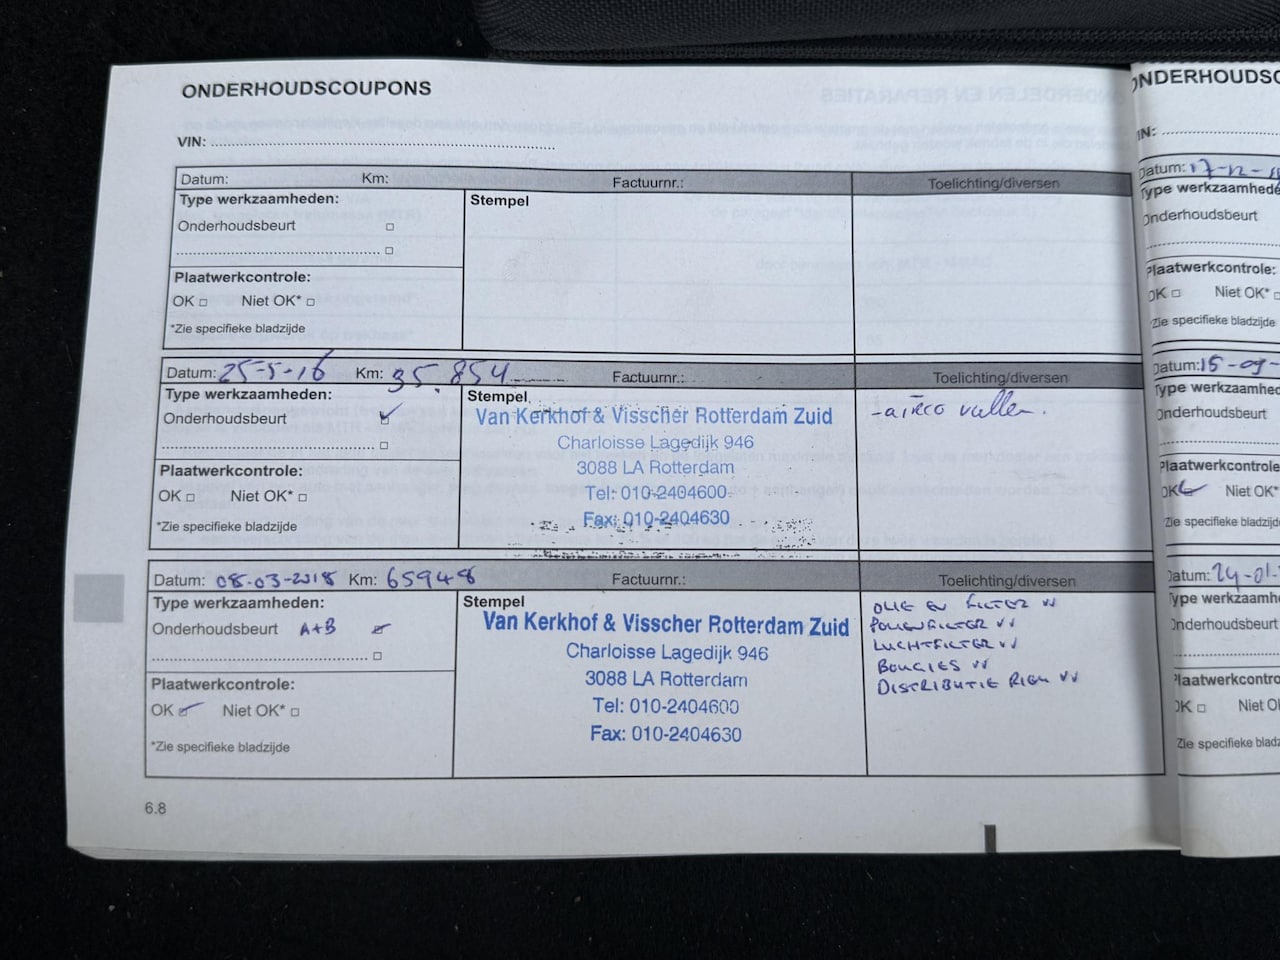 ONDERHOUDSCOUPONS
VIN:
Datum: Km: Factuurnr.: Toelichting/diversen
Type werkzaamheden: Stempel
Onderhoudsbeurt
Plaatwerkcontrole:
OK Niet OK*
*Zie specifieke bladzijde
Datum: 25-5-16 Km: 35.854 Factuurnr.: Toelichting/diversen
Type werkzaamheden: Stempel
Onderhoudsbeurt
Plaatwerkcontrole:
OK Niet OK*
*Zie specifieke bladzijde
Van Kerkhof & Visscher Rotterdam Zuid
Charloisse Lagedijk 946
3088 LA Rotterdam
Tel: 010-2404600
Fax: 010-2404630
-aireco vullen.
Datum: 08-03-2018 Km: 65948 Factuurnr.: Toelichting/diversen
Type werkzaamheden: Stempel
Onderhoudsbeurt A+B
Plaatwerkcontrole:
OK Niet OK*
*Zie specifieke bladzijde
Van Kerkhof & Visscher Rotterdam Zuid
Charloisse Lagedijk 946
3088 LA Rotterdam
Tel: 010-2404600
Fax: 010-2404630
OLIE EN FILTER VV
POLLENFILTER VV
LUCHTFILTER VV
BOUGIES VV
DISTRIBUTIE RIEM VV
6.8
ONDERHOUDSC
IN:
Datum: 17-12-
Type werkzaamhede
Onderhoudsbeurt
Plaatwerkcontrole:
OK Niet OK*
*Zie specifieke bladzijde
Datum: 15-09-
Type werkzaamhed
Onderhoudsbeurt
Plaatwerkcontrole
OK Niet OK*
Zie specifieke bladzijd
Datum: 24-01-
Type werkzaamh
Onderhoudsbeurt
Plaatwerkcontro
OK Niet O
Zie specifieke bladz